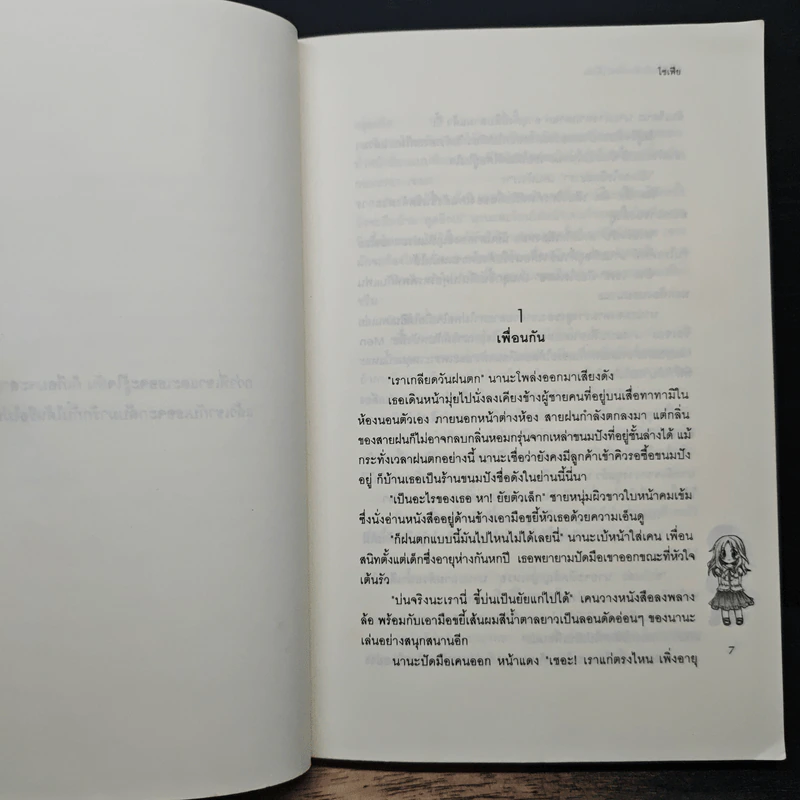 โซเฟีย
1
เพื่อนกัน
"เราเกลียดวันฝนตก" นานะโพล่งออกมาเสียงดัง
เธอเดินหน้ามุ่ยไปนั่งลงเคียงข้างผู้ชายคนที่อยู่บนเสื่อทาทามิใน
ห้องนอนตัวเอง ภายนอกหน้าต่างห้อง สายฝนกำลังตกลงมา แต่กลิ่น
ของสายฝนก็ไม่อาจกลบกลิ่นหอมกรุ่นจากเหล่าขนมปังที่อยู่ชั้นล่างได้ แม้
กระทั่งเวลาฝนตกอย่างนี้ นานะเชื่อว่ายังคงมีลูกค้าเข้าคิวรอซื้อขนมปัง
อยู่ ก็บ้านเธอเป็นร้านขนมปังชื่อดังในย่านนี้นี่นา
"เป็นอะไรของเธอ หา! ยัยตัวเล็ก" ชายหนุ่มผิวขาวใบหน้าคมเข้ม
ซึ่งนั่งอ่านหนังสืออยู่ด้านข้างเอามือขยี้หัวเธอด้วยความเอ็นดู
"ก็ฝนตกแบบนี้มันไปไหนไม่ได้เลยนี่" นานะเบ้หน้าใส่เคน เพื่อน
สนิทตั้งแต่เด็กซึ่งอายุห่างกันหกปี เธอพยายามปัดมือเขาออกขณะที่หัวใจ
เต้นรัว
"บ่นจริงนะเรานี่ ขี้บ่นเป็นยัยแก่ไปได้" เคนวางหนังสือลงพลาง
ล้อ พร้อมกับเอามือขยี้เส้นผมสีน้ำตาลยาวเป็นลอนดัดอ่อนๆ ของนานะ
เล่นอย่างสนุกสนานอีก
นานะปัดมือเคนออก หน้าแดง "เชอะ! เราแก่ตรงไหน เพิ่งอายุ
7